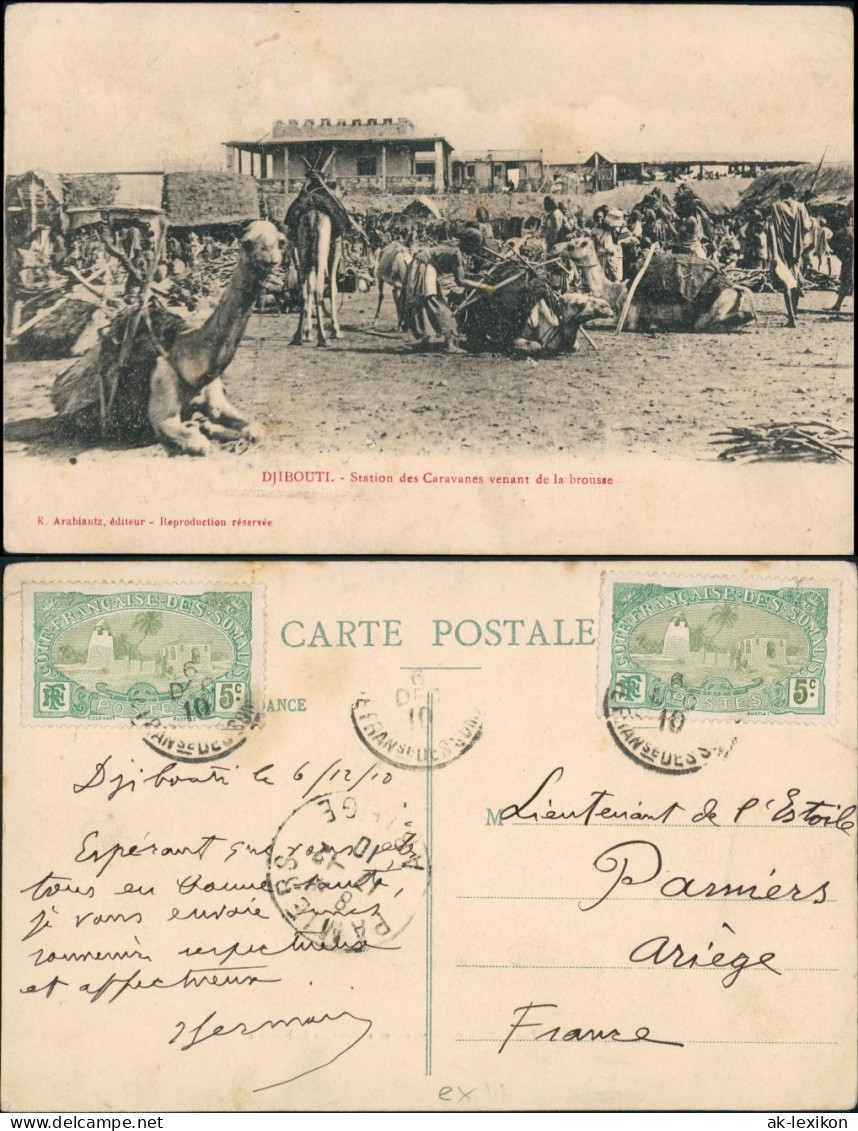 DJIBOUTI. - Station des Caravanes venant de la brousse
K. Arabiantz, éditeur - Reproduction réservée
CÔTE·FRANÇAISE·DES·SOMALIS
POSTES 5c
CARTE POSTALE
CÔTE·FRANÇAISE·DES·SOMALIS
POSTES 5c
6 DEC 10
6 DEC 10
6 DEC 10
ANCE
Djibouti le 6/12/10
Espérant que vous êtes
tous en bonne santé,
je vous envoie mes
souvenirs respectueux
et affectueux
Germain
PAMIERS
M Lieutenant de l'Estoile
Pamiers
Ariège
France
ex
ak-lexikon.com